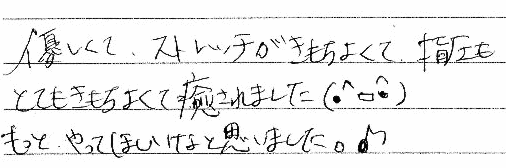 優しくて、ストレッチがきもちよくて、指圧も
とてもきもちよくて癒されました(•^ロ^•)
もっと、やってほしいけなと思いました。♪